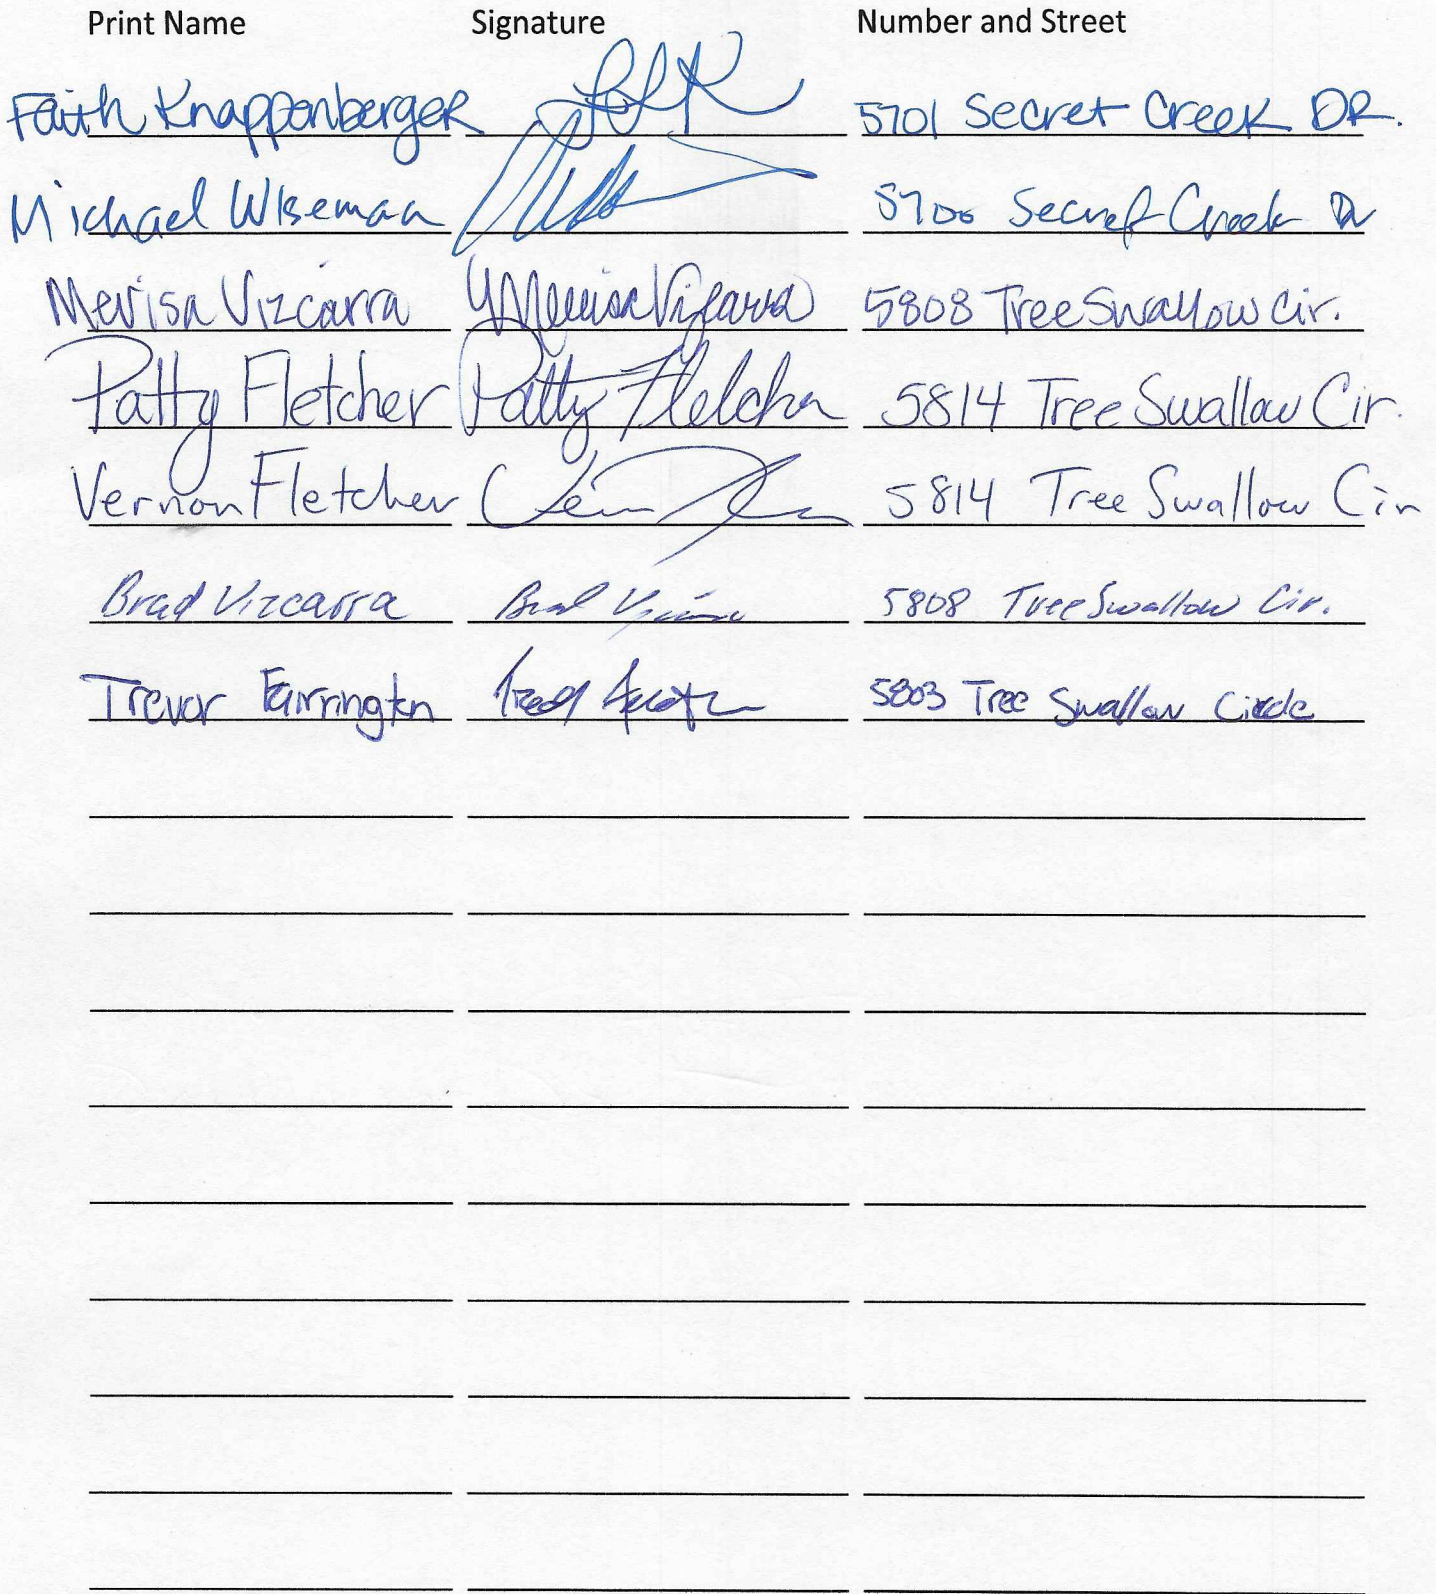 Print Name Signature Number and Street
Faith Knappenberger 5701 Secret Creek DR.
Michael Wiseman 5700 Secret Creek Dr
Merisa Vizcarra Merisa Vizcarra 5808 Tree Swallow Cir.
Patty Fletcher Patty Fletcher 5814 Tree Swallow Cir.
Vernon Fletcher 5814 Tree Swallow Cir
Brad Vizcarra Brad 5808 Tree Swallow Cir.
Trevor Farrington 5803 Tree Swallow Circle